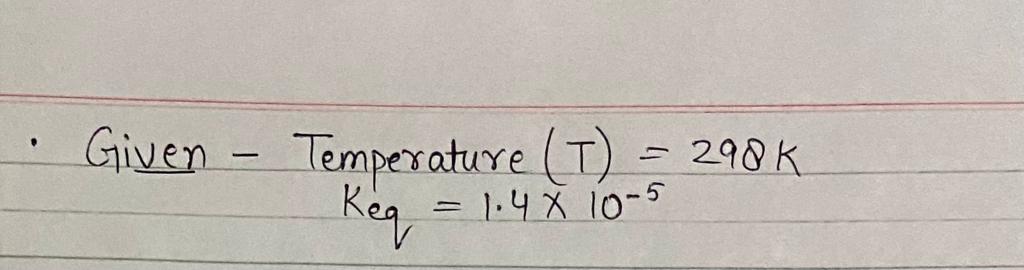 • Given - Temperature (T) = 298K
Keq = 1.4 X 10-5